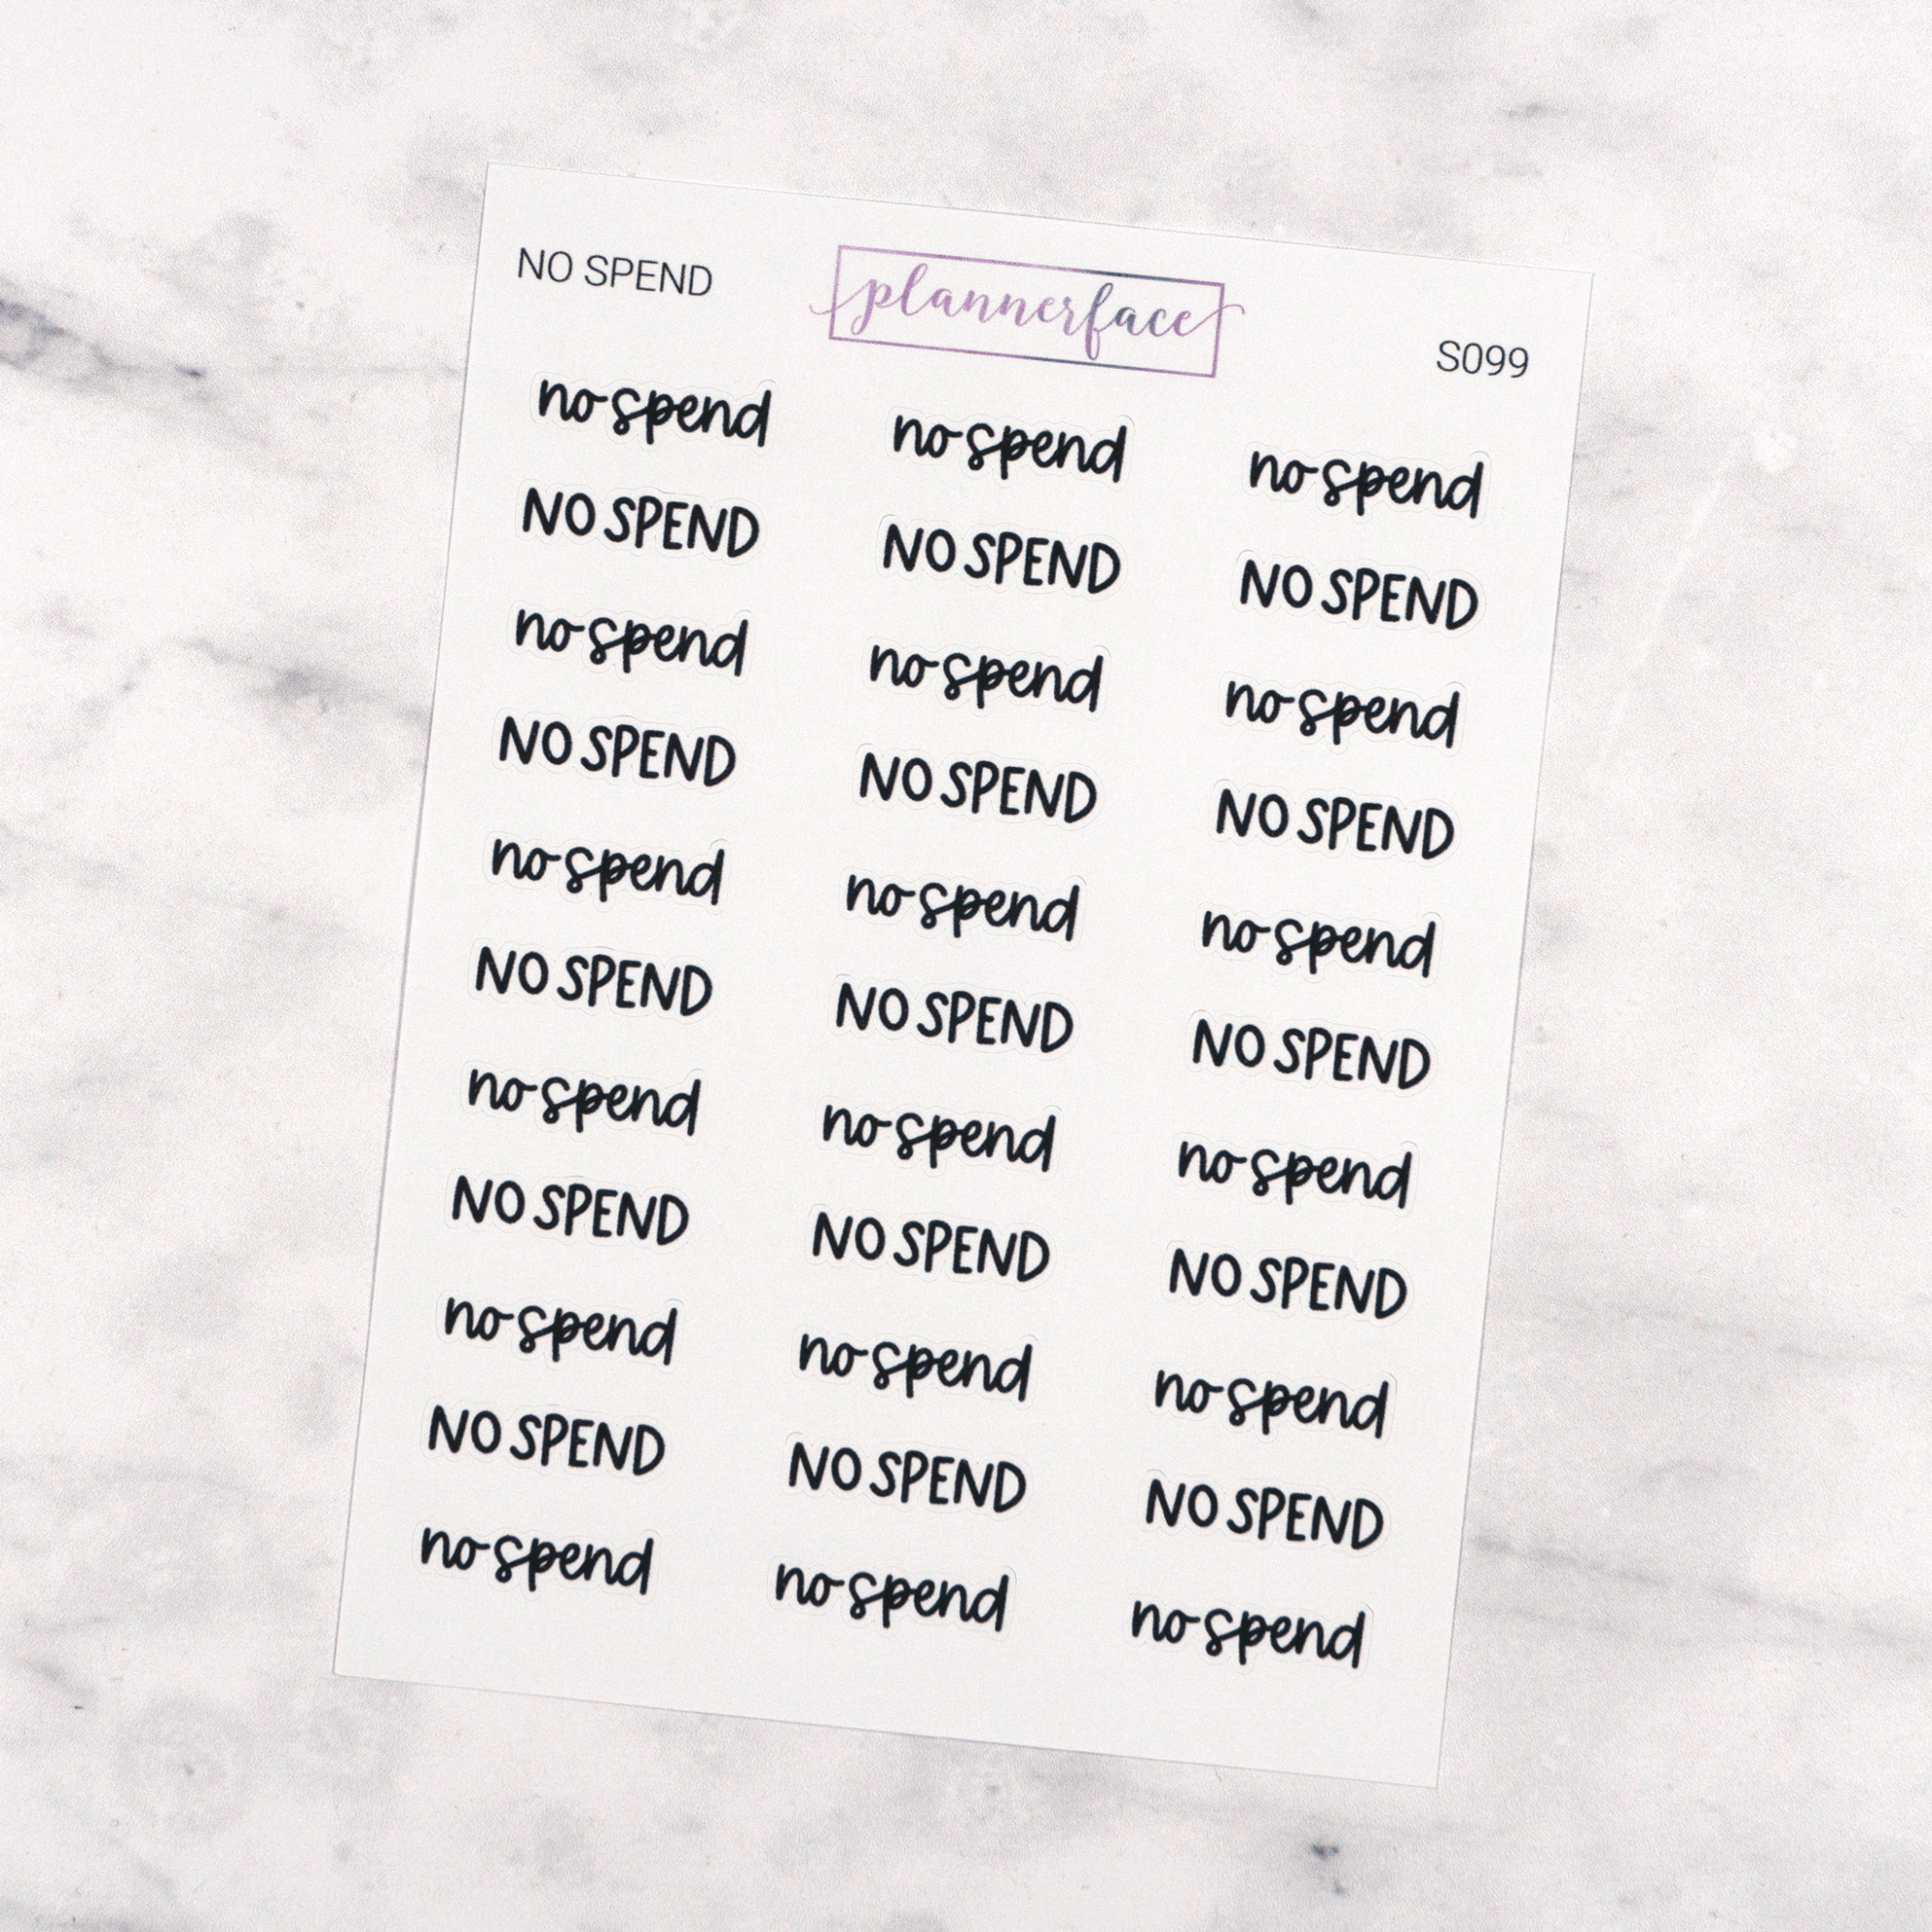 NO SPEND plannerface S099
no spend no spend no spend
NO SPEND NO SPEND NO SPEND
no spend no spend no spend
NO SPEND NO SPEND NO SPEND
no spend no spend no spend
NO SPEND NO SPEND NO SPEND
no spend no spend no spend
NO SPEND NO SPEND NO SPEND
no spend no spend no spend
NO SPEND NO SPEND NO SPEND
no spend no spend no spend